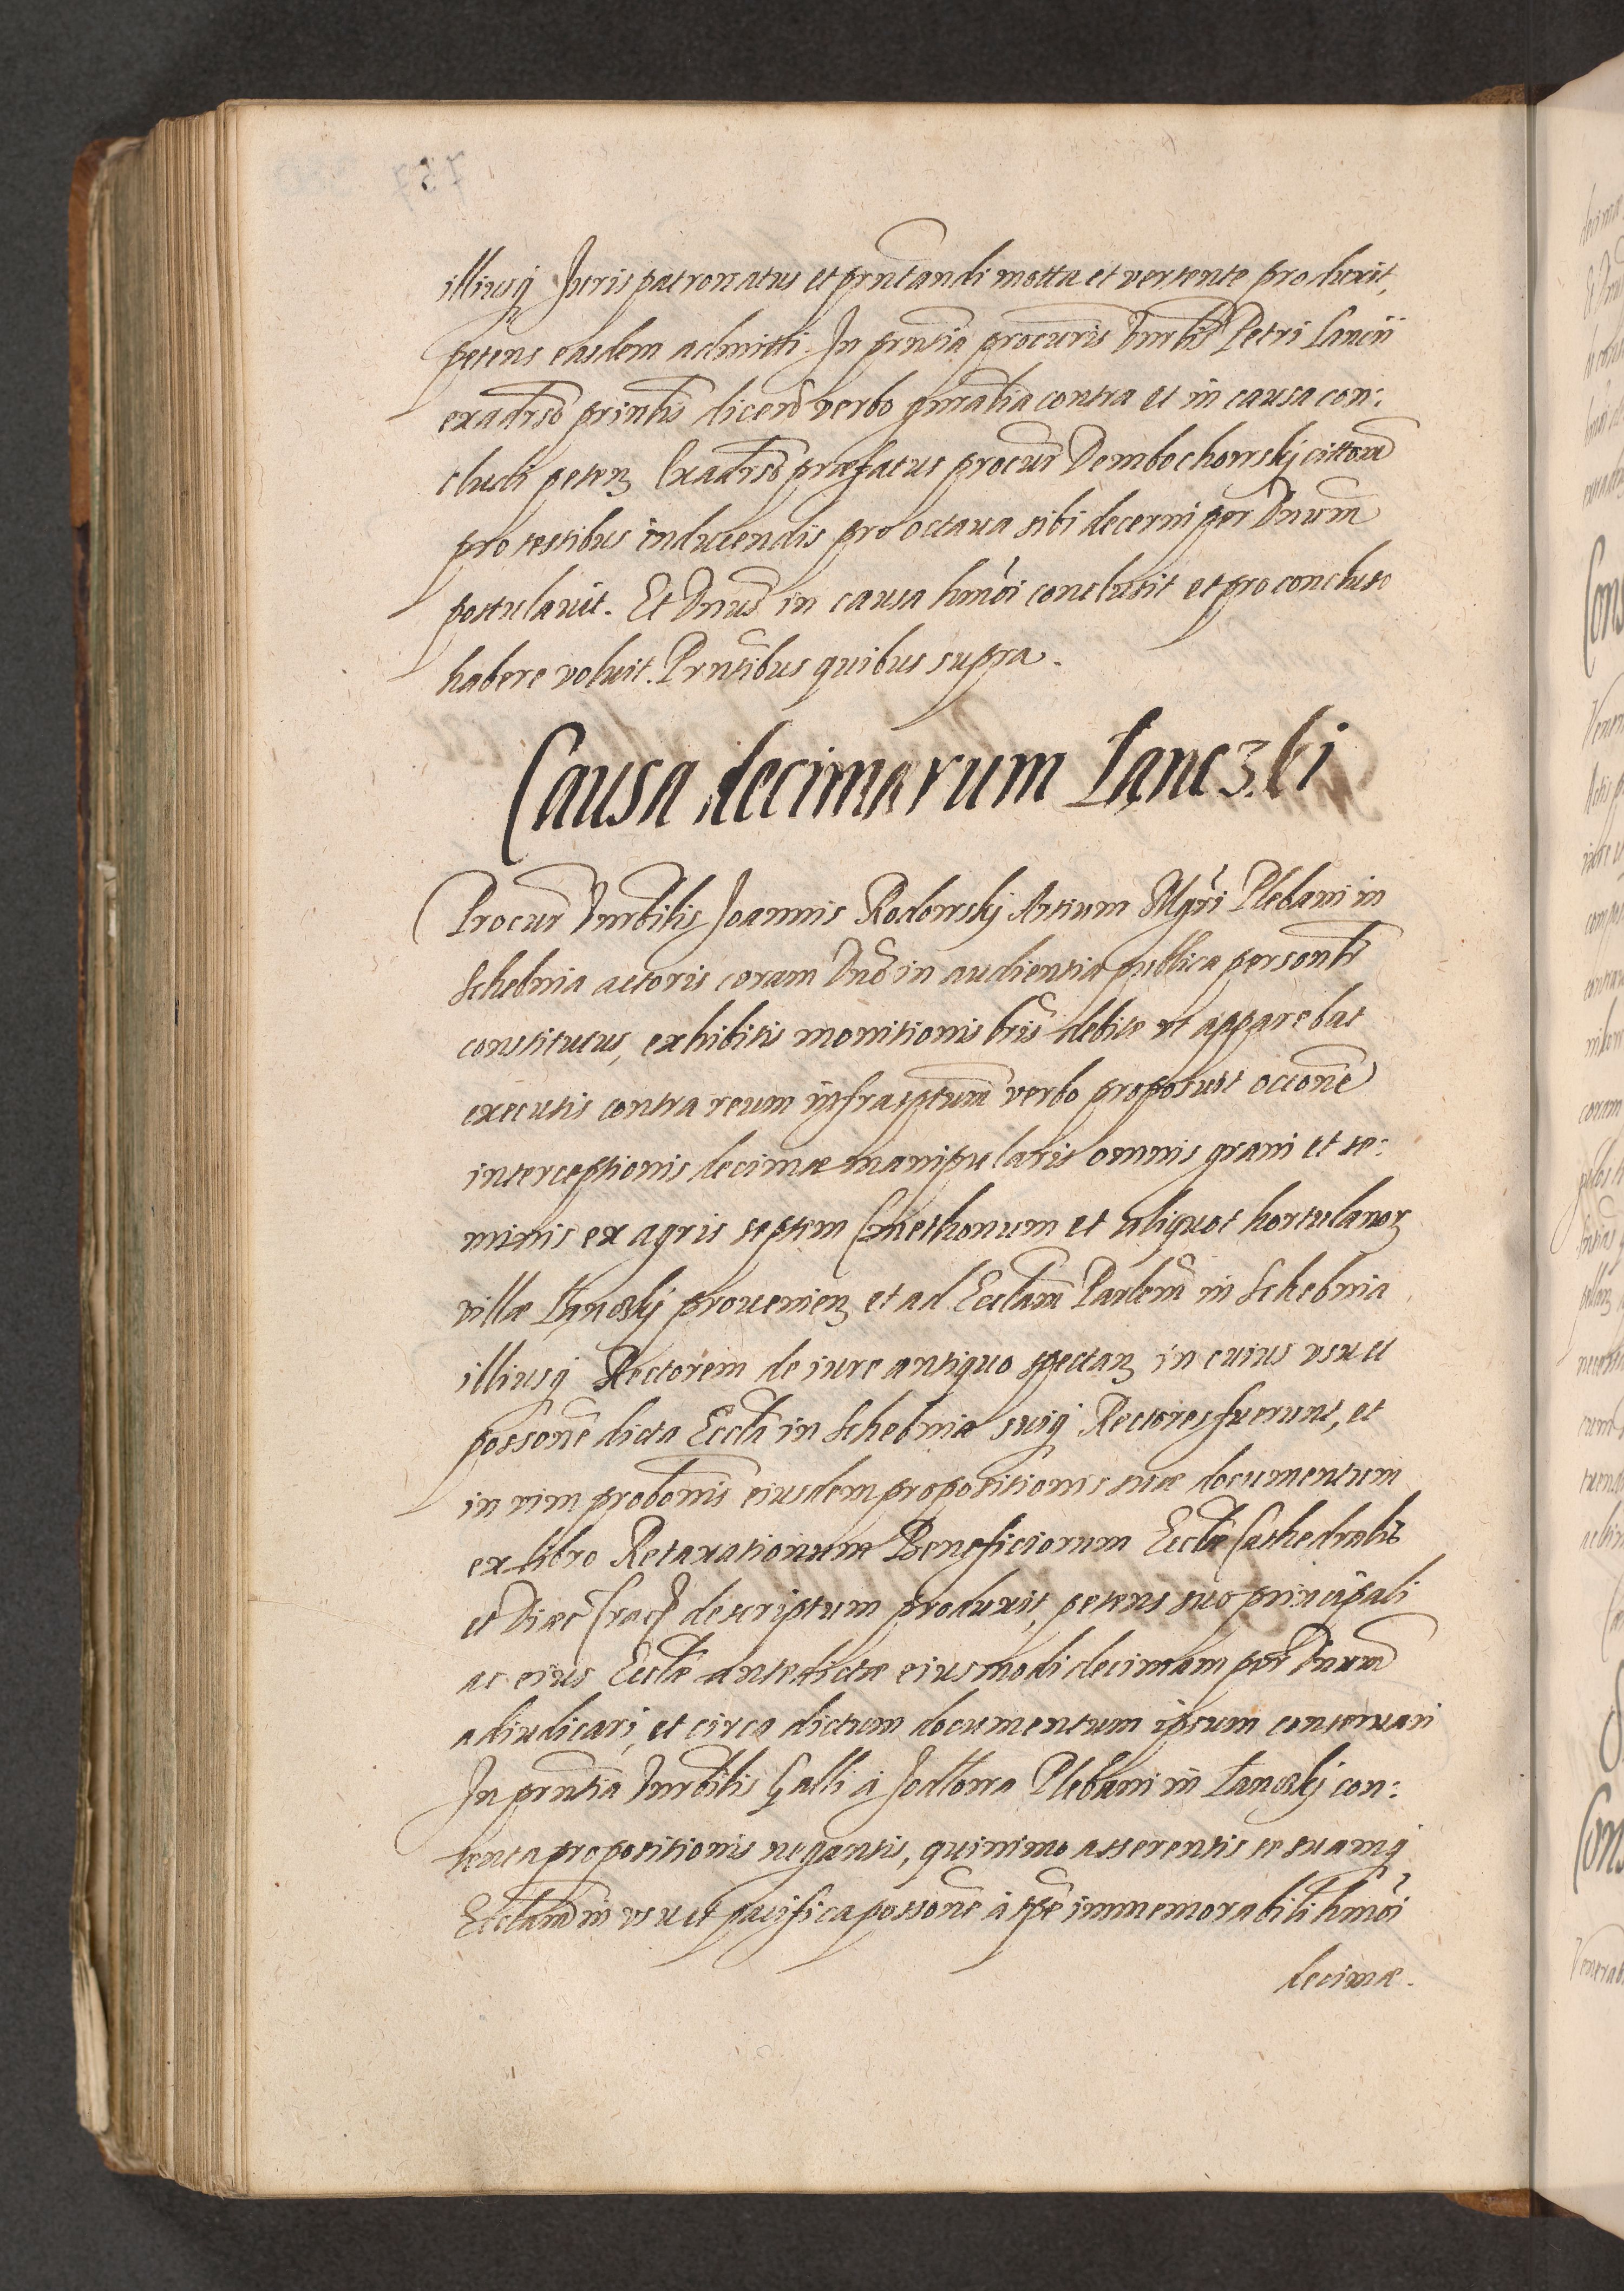 illiusq Jurispatronatus et prntandi motta et vertente produxit,
petens easdem admitti. In prntia procuris Vnrblis Petri Lancii
exadrso printis dicen verbo gnralia contra et in causa con:
cludi peten Exadrso præfatus procur Dembochowskj cittonem
pro testibus inducendis pro octaua sibi decerni per Dnum
postulauit. Et Dnus in causa hmoi conclusit et pro concluso
habere voluit. Prntibus quibus supra.
Causa decimarum Łanczki
Procur Vnrbilis Joannis Rodowskj Artium Mgri Plebani in
Schebnia actoris coram Dno in audientia publica personlr
constitutus, exhibitis monitionis lris debite vt apparebat
executis contra reum infrasptum verbo proposuit occone
interceptionis decimæ manipularis omnis grani et se:
minis ex agris septem Cmethonum et aliquot hortulanor
villæ Łanczkj prouenien et ad Ecclam Parlem in Schebnia
illiusq Rectorem de iure antiquo spectan in cuius vsu et
possone dicta Eccla in Schebnia suiq Rectores fuerunt, et
in vim probonis eiusdem propositionis suæ documentum
ex libro Retaxationum Beneficiorum Ecclæ Cathedralis
et Diæc Crac descriptum produxit, petens suo principali
ac eius Ecclæ antedictæ eiusmodi decimam per Dnum
adiudicari, et circa dictum documentum ipsum conseruari
In prntia Vnrbilis Galli à Jodłowa Plebani in Łanczkj con:
tenta propositionis negantis, quinimo asserentis se suamq
Ecclam in vsu et pacifica possone à tpe immemorabili hmoi
decimæ.